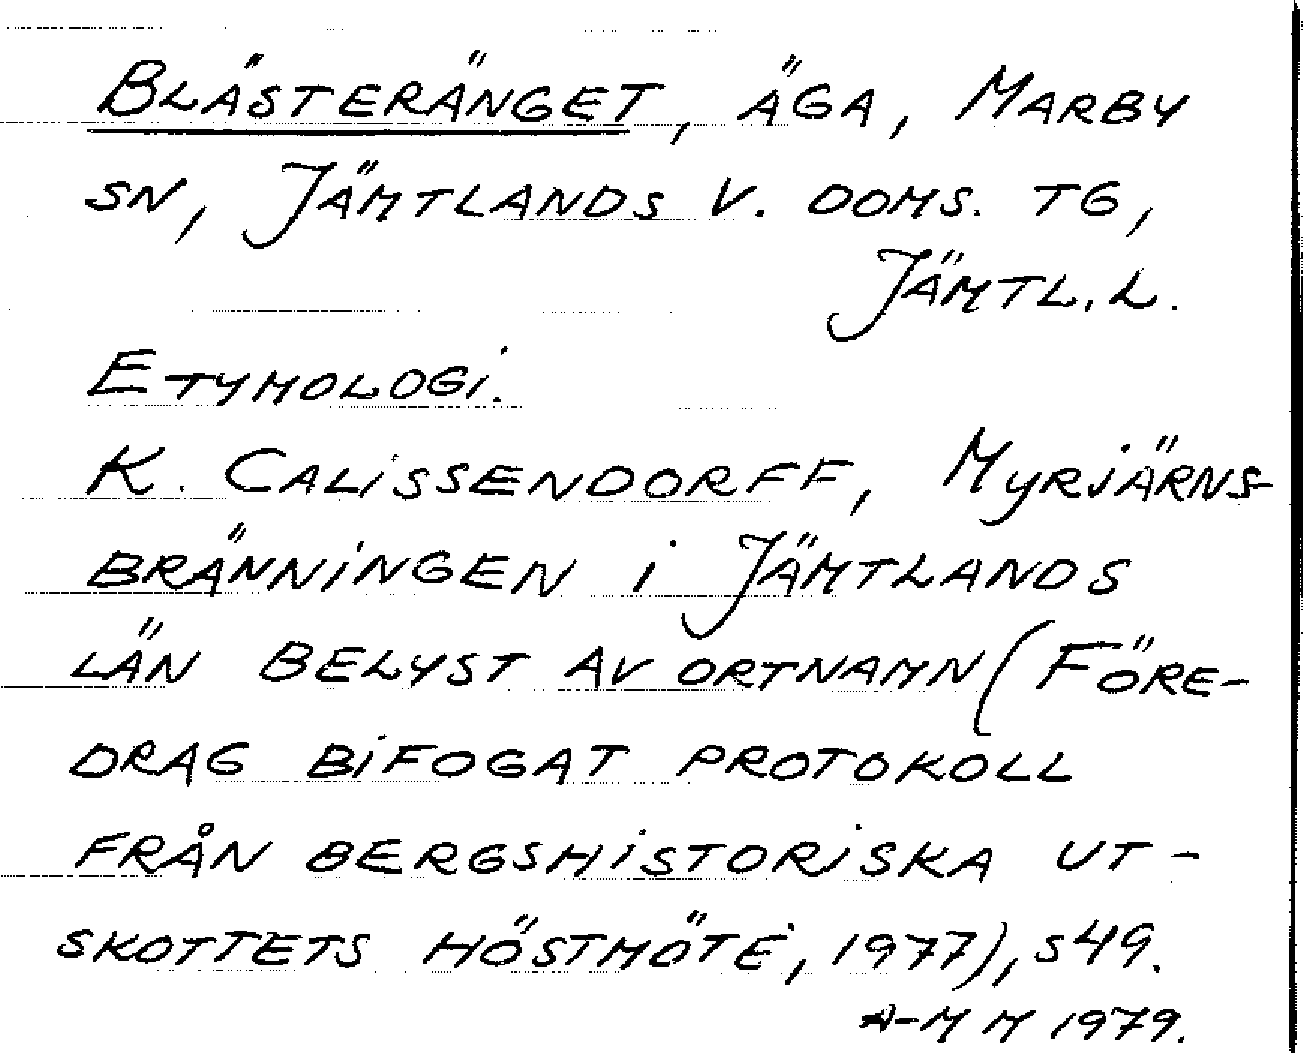 BLÄSTERÄNGET, ÄGA, MARBY
SN, JÄMTLANDS V. DOMS. TG,
JÄMTL.L.
ETYMOLOGI.
K. CALISSENDORFF, MYRJÄRNS-
BRÄNNINGEN I JÄMTLANDS
LÄN BELYST AV ORTNAMN (FÖRE-
DRAG BIFOGAT PROTOKOLL
FRÅN BERGSHISTORISKA UT-
SKOTTETS HÖSTMÖTE, 1977), S 49.
A-M M 1979.